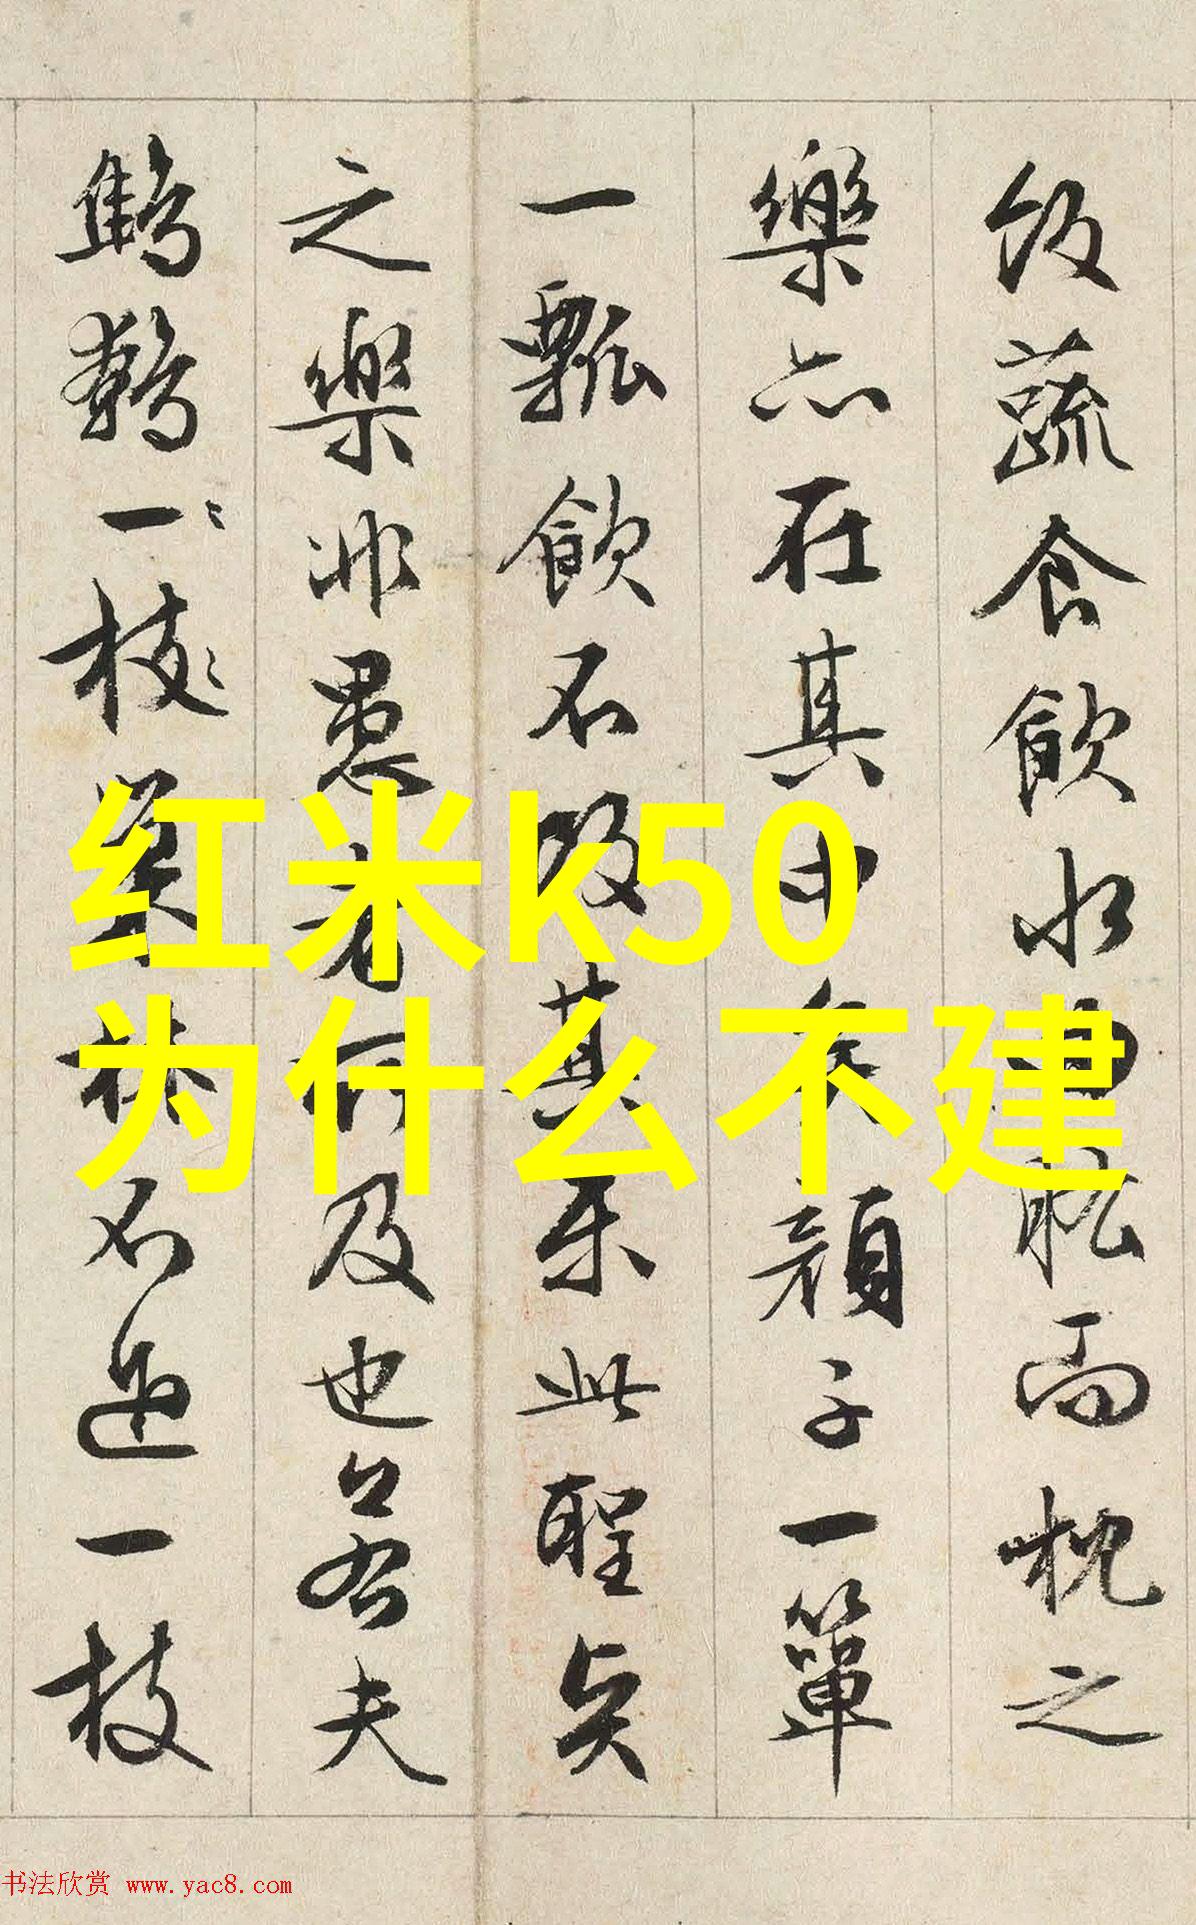 飯蔬食飲水曲肱而枕之
樂亦在其中矣顏子一簞
一瓢飲不改其樂此聖賢
之樂非愚者所及也若夫
鷦鷯一〻枝〻巢林不過一枝
红米k50
为什么不建
书法欣赏 www.yac8.com